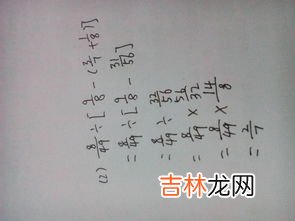 (2) 8/49 ÷ [9/8 - (3/7 + 1/8)]
= 8/49 ÷ [9/8 - 31/56]
= 8/49 ÷ 32/56
= 8/49 × 56/32
= 8/49 × 14/8
= 2/7
吉林龙网